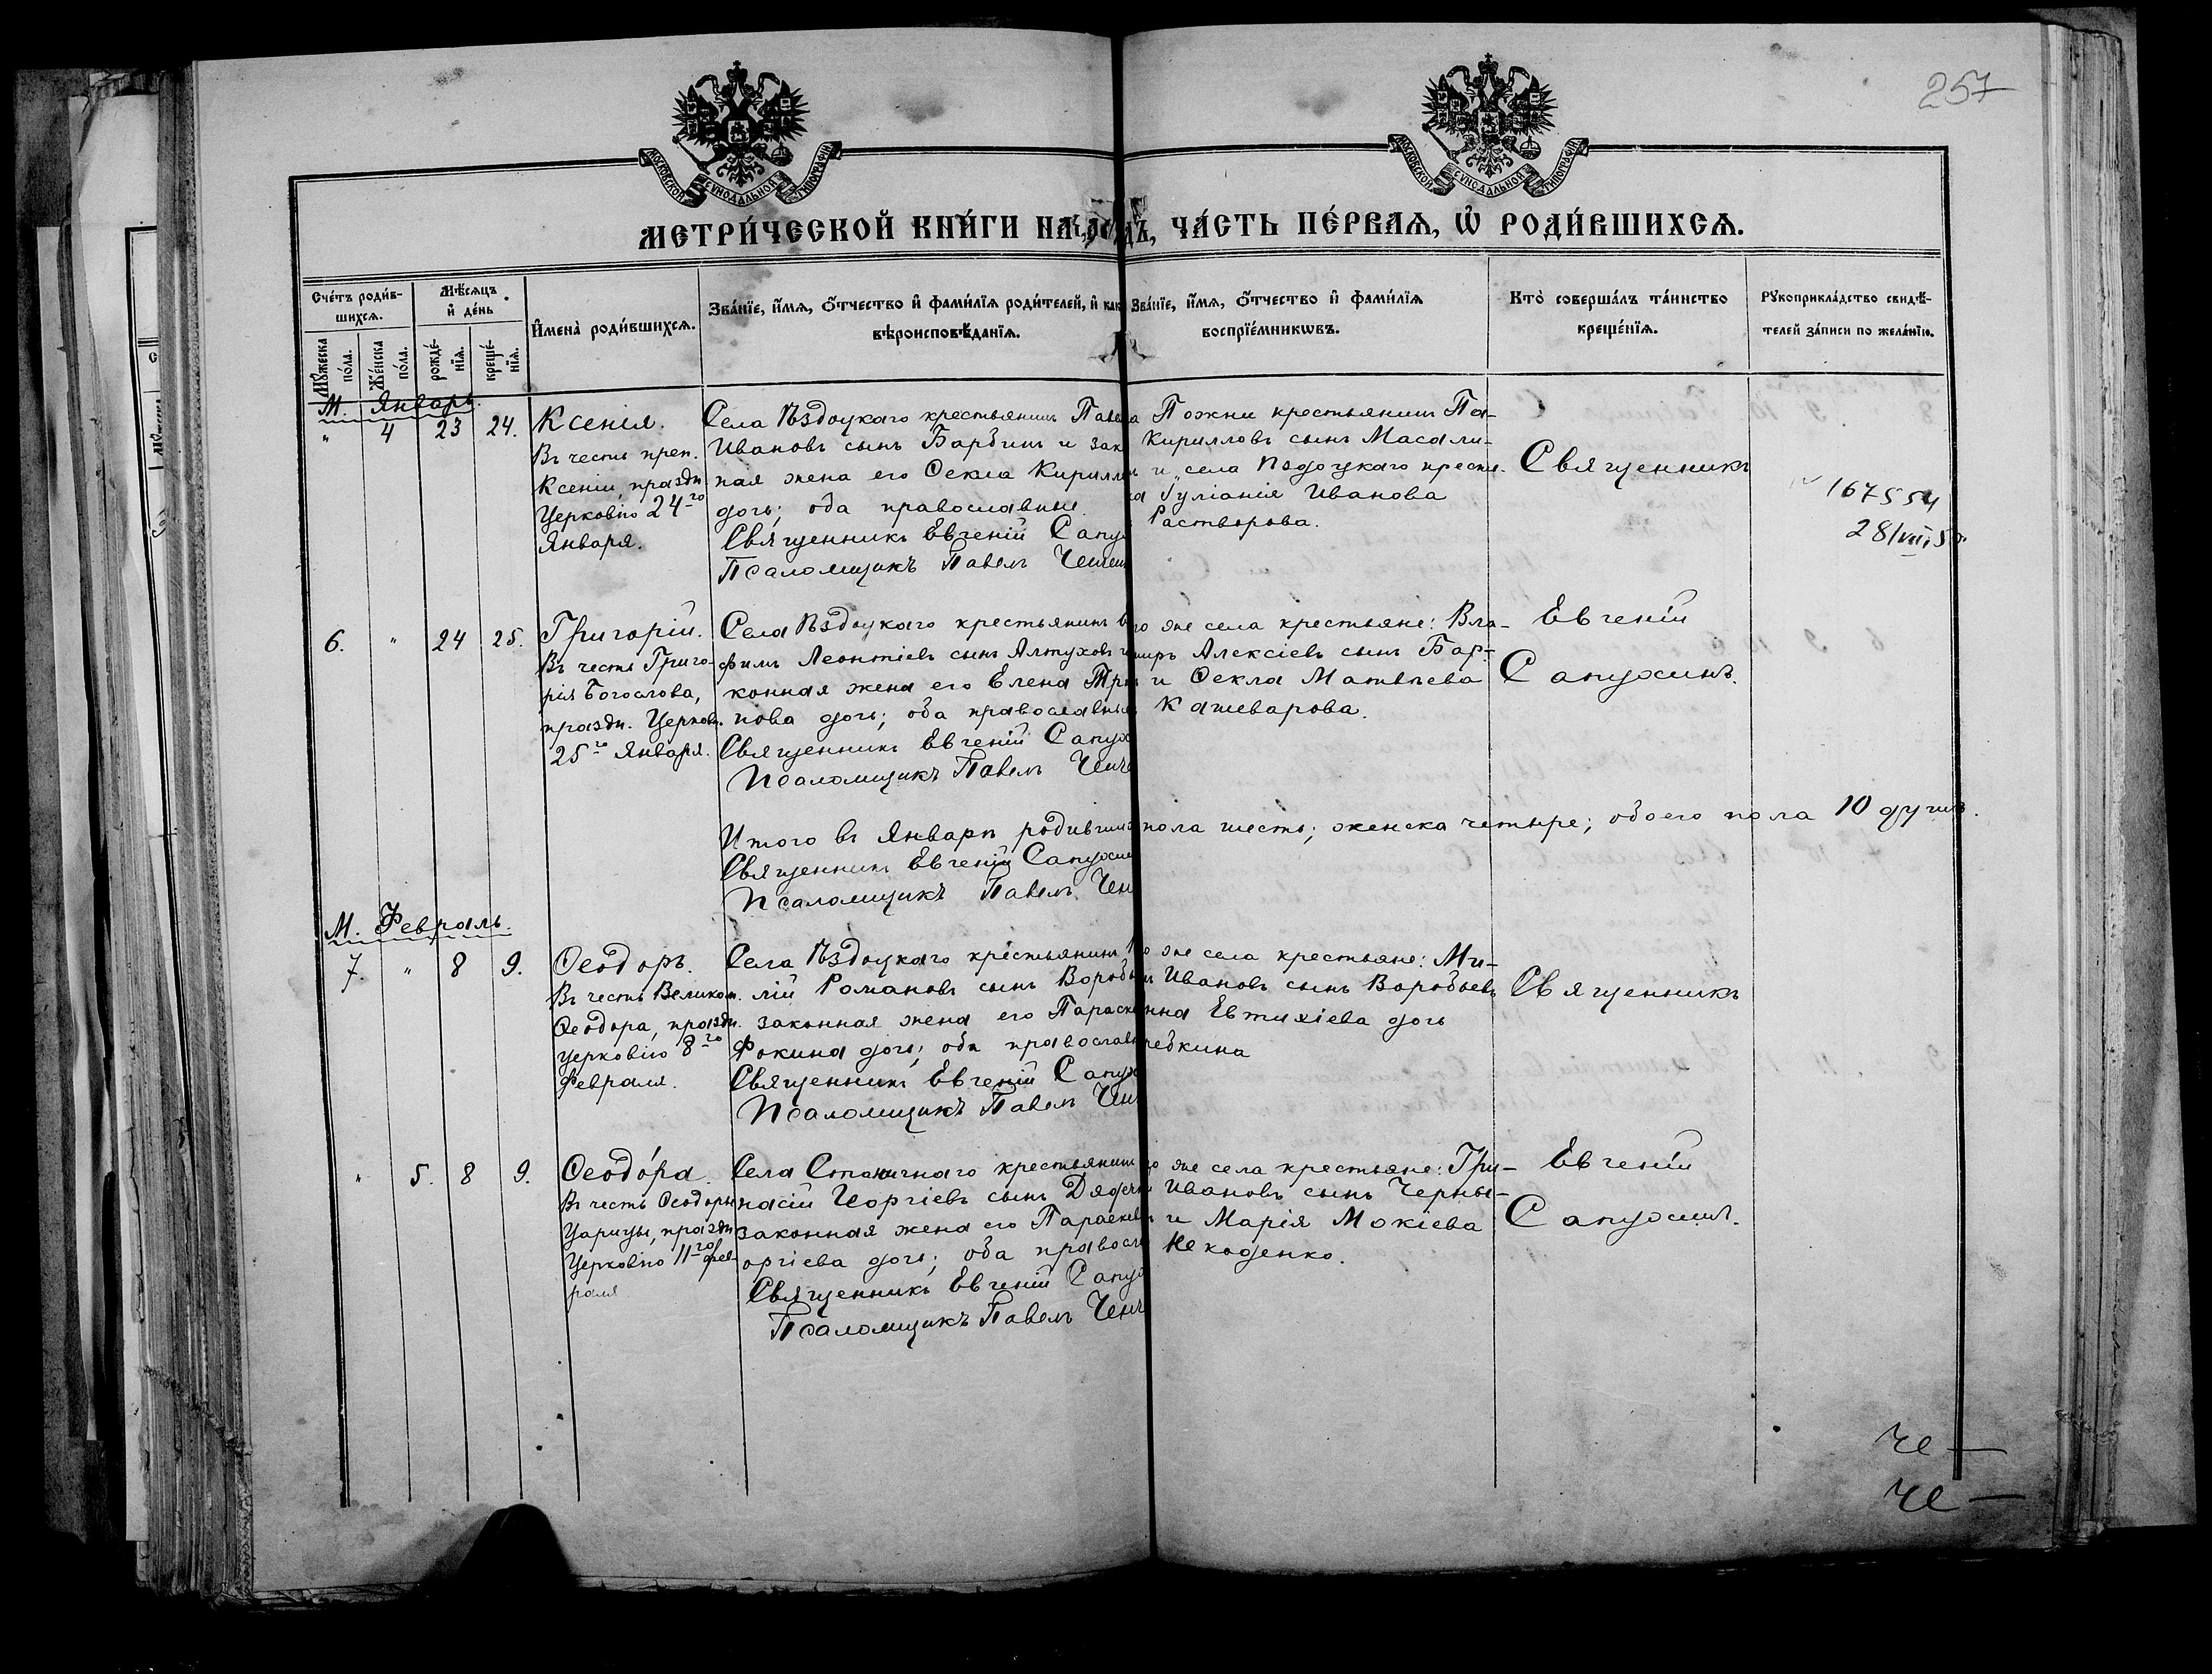 257
МОСКОВСКОЙ СѴНОДАЛЬНОЙ ТИПОГРАФІИ
МОСКОВСКОЙ СѴНОДАЛЬНОЙ ТИПОГРАФІИ
МЕТРИ́ЧЕСКОЙ КНИ́ГИ НА ЧА́СТЬ ПЕ́РВАѦ, Ѽ РОДИ́ВШИХСѦ.
Сче́тъ роди́в-
шихсѧ.
Мꙋ́жеска
по́ла.
Же́нска
по́ла.
Мѣ́сѧцъ
и҆ де́нь
рожде́-
нїѧ.
креще́-
нїѧ.
И҆мена̀ роди́вшихсѧ.
Зва́нїе, и҆́мѧ, ѻ҆́тчество и҆ фами́лїѧ роди́телей, и҆ как
вѣроисповѣ́данїѧ.
Зва́нїе, и҆́мѧ, ѻ҆́тчество и҆ фами́лїѧ
воспрїе́мникѡвъ.
Кто̀ соверша́лъ та́инство
креще́нїѧ.
Рꙋкоприкла́дство свидѣ́-
телей за́писи по жела́нїю.
М. Январь.
" 4 23 24.
Ксенія.
Въ честь преп.
Ксеніи, праздн.
Церковію 24го
Января.
Села Ѣздоцкаго крестьянинъ Паве
Ивановъ сынъ Барбинъ и зак
ная жена его Ѳекла Кирилл
дочь; оба православные.
Священникъ Евгеній Сапу
Псаломщикъ Павелъ
Пожни крестьянинъ Па-
Кирилловъ сынъ Масали-
и села Ѣздоцкаго крестьн.
Іуліанія Иванова
Растворова.
Священникъ
167554
28/VII
6. " 24 25.
Григорій.
Въ честь Григо-
рія Богослова,
праздн. Церков.
25го Января.
Села Ѣздоцкаго крестьянинъ
фимъ Леонтіевъ сынъ Алтуховъ и
конная жена его Елена
пова дочь; оба православны
Священникъ Евгеній Сапу
Псаломщикъ Павелъ
го же села крестьяне: Вла-
миръ Алексіевъ сынъ Бар-
и Ѳекла Матвѣева
Кашеварова.
Евгеній
Сапухинъ.
Итого въ Январѣ родивших
пола шесть; женска четыре; обоего пола 10 душъ.
Священникъ Евгеній Сапухи
Псаломщикъ Павелъ
М. Февраль.
7. " 8 9.
Ѳеодоръ.
Въ честь Великом.
Ѳеодора, праздн.
церковію 8го
Февраля.
Села Ѣздоцкаго крестьянинъ
лій Романовъ сынъ Вороб
законная жена его Параск
Фокина дочь; оба православ
Священникъ Евгеній Сапу
Псаломщикъ Павелъ
го же села крестьяне: Ми-
Ивановъ сынъ Воробьевъ
Евтихіева дочь
Священникъ
" 5. 8 9.
Ѳеодо́ра.
Въ честь Ѳеодоры
Царицы, праздн.
Церковію 11го фев-
раля.
Села Стаканчнаго крестьянин
насій Георгіевъ сынъ
законная жена его Параскев
оргіева дочь; оба правосл
Священникъ Евгеній Сапу
Псаломщикъ Павелъ
го же села крестьяне: Гри-
Ивановъ сынъ Черны-
и Марія Мокіева
Некоденко.
Евгеній
Сапухинъ.
че —
че —